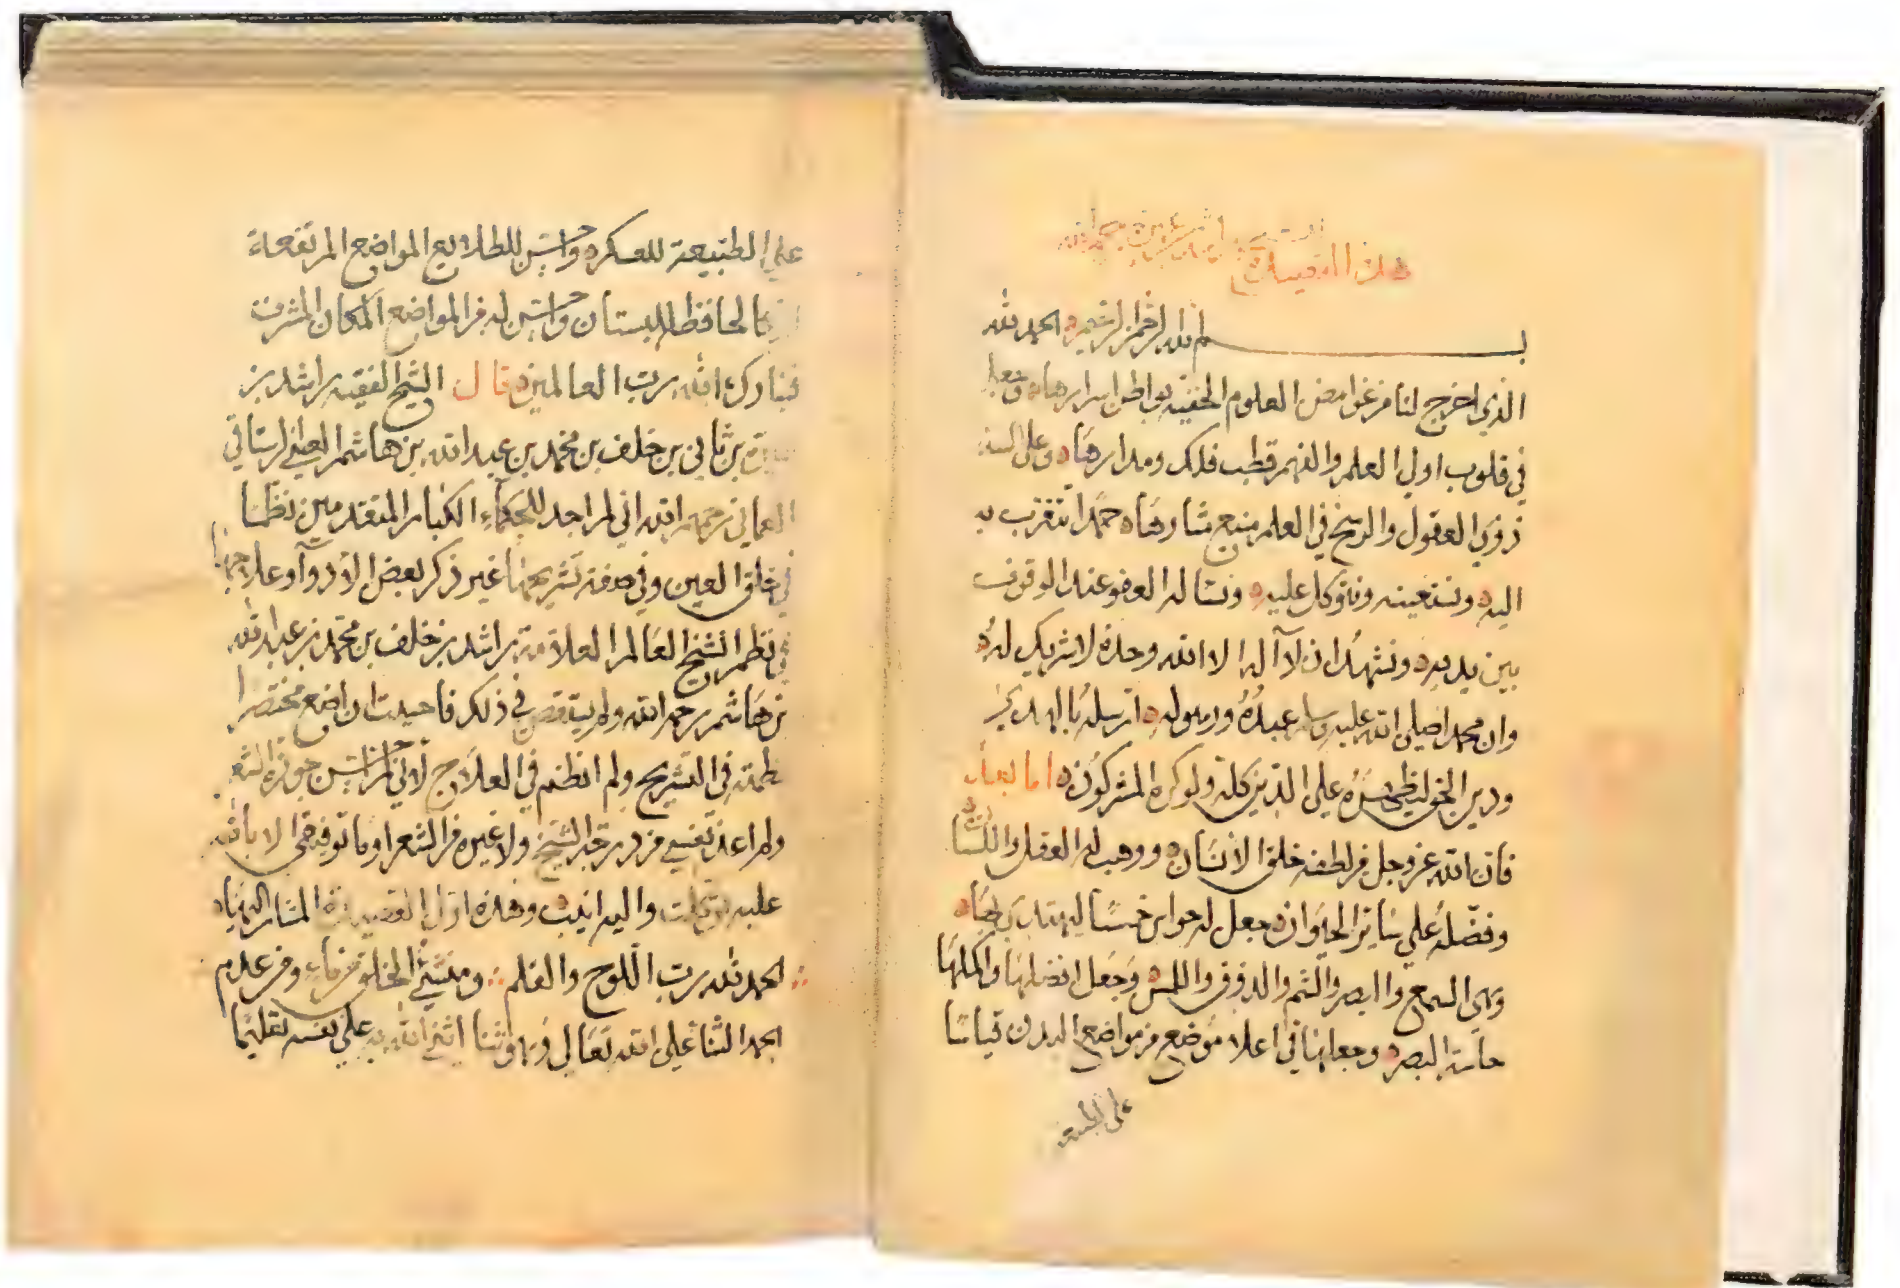 هذه القصيدة
بسم الله الرحمن الرحيم الحمد لله
الذي اخرج لنا من غوامض العلوم الخفيه بواطن اسرارها وجعل
في قلوب اولي العلم والفهم قطب فلك ومدارها وعلى السنة
ذوي العقول والرسخ في العلم منبع حمدا نتقرب به
اليه ونستعينه ونتوكل عليه ونساله العفو عند الوقوف
بين يديه ونشهد ان لا آله الا الله وحده لا شريك له
وان محمدا صلى الله عليه وسلم عبده ورسوله ارسله بالهدى
ودين الحق ليظهره على الدين كله ولو كره المشركون اما بعد
فان الله عز وجل من لطفه خلق الانسان ووهب له العقل واللسان
وفضله على سائر الحيوان وجعل له حواس خمسا ليهتدي بها
وهي السمع والبصر والشم والذوق واللمس وجعل افضلها واكملها
حاسة البصر وجعلها في اعلا موضع من مواضع البدن قياسا
على الطبيعة
على الطبيعة للعسكر واحسن للطلايع المواضع المرتفعة
الحافظ للبستان واحسن له من المواضع المكان المشرف
فتبارك الله رب العالمين قال الشيخ الفقيه راشد بن
بن ثاني بن خلف بن محمد بن عبد الله بن هاشم العيني الرستاقي
العماني رحمهم الله اني لم اجد للحكماء الكبار المتقدمين نظما
في خلق العين وفي صفة تشريحها غير ذكر بعض الادوآ وعلاجها
نظم الشيخ العالم العلامة راشد بن خلف بن محمد بن عبد الله
بن هاشم رحمه الله ولم في ذلك فاحببت ان اضع مختصرا
نظمته في التشريح ولم انظم في العلاج لاني
ولم اعد نفسي من درجة الشيخ ولا غيره من الشعرا وما توفيقي الا بالله
عليه توكلت واليه انيب وهذه اول القصيدة المشار اليها
الحمد لله رب اللوح والقلم ومنشئ الخلق من ماء ومن عدم
الحمد الثنا على الله تعالى وهو ثنا اثنى الله به على نفسه تعليما